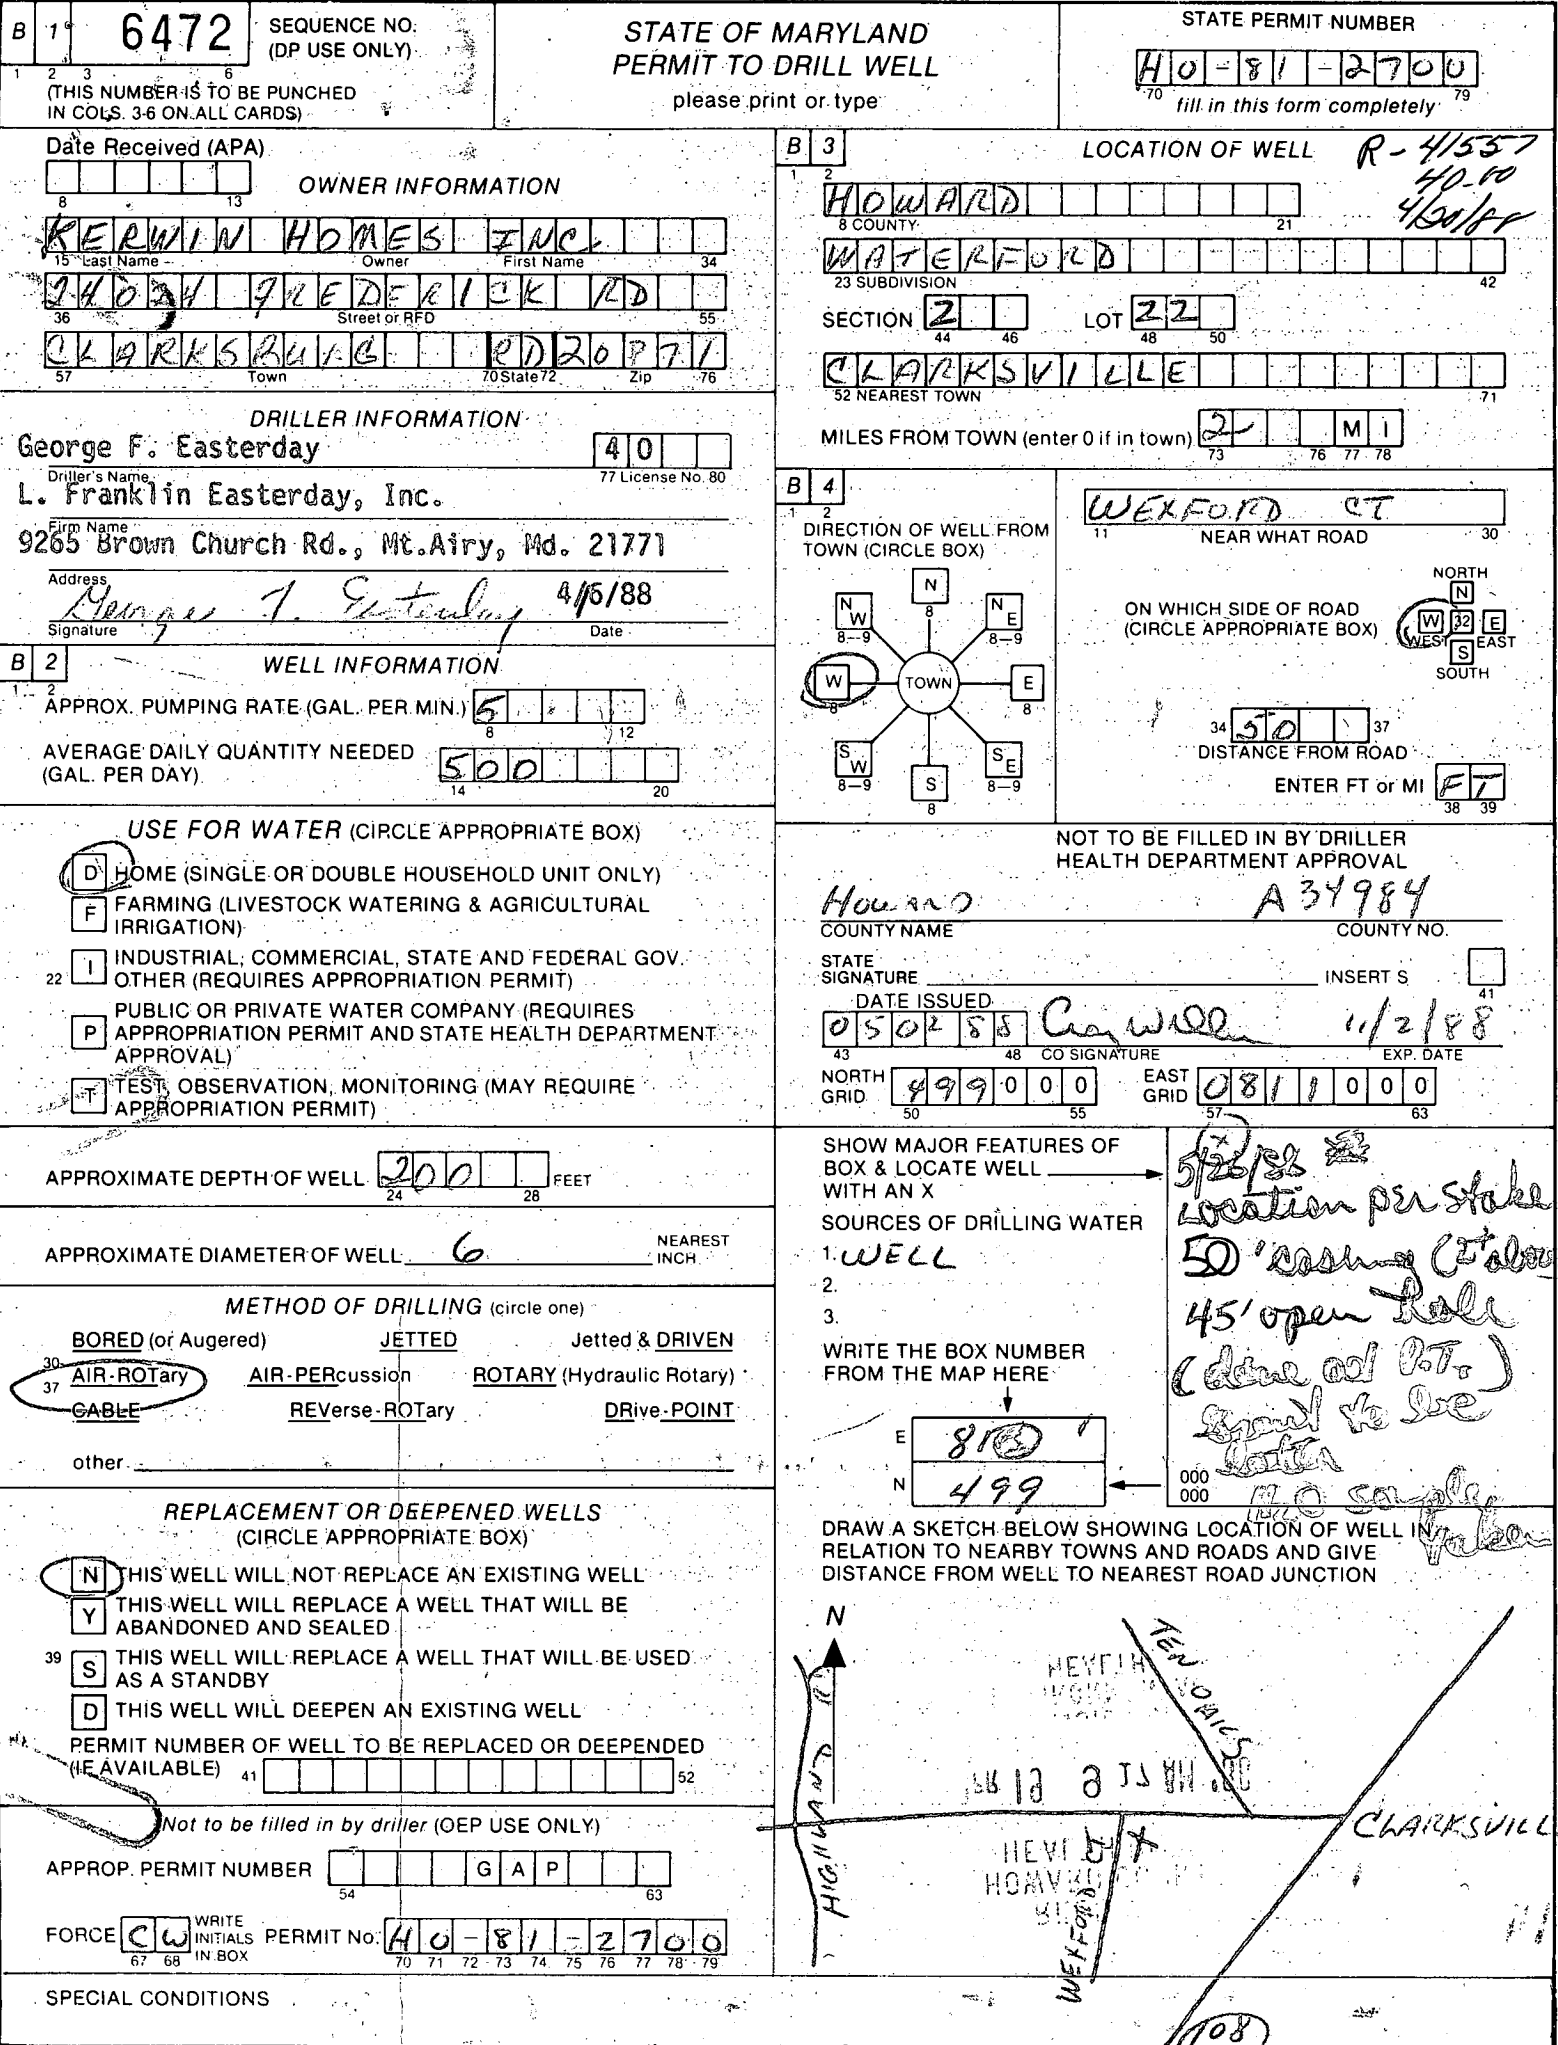 B 1 6472 SEQUENCE NO. (DP USE ONLY)
1 2 3 6
(THIS NUMBER IS TO BE PUNCHED
IN COLS. 3-6 ON ALL CARDS)
STATE OF MARYLAND
PERMIT TO DRILL WELL
please print or type
STATE PERMIT NUMBER
HO-81-2700
70 79
fill in this form completely
Date Received (APA)
8 13
OWNER INFORMATION
KERWIN HOMES INC.
15 Last Name Owner First Name 34
24024 FREDERICK RD
36 Street or RFD 55
CLARKSBURG RD 20871
57 Town 70 State 72 Zip 76
DRILLER INFORMATION
George F. Easterday 40
Driller's Name 77 License No. 80
L. Franklin Easterday, Inc.
Firm Name
9265 Brown Church Rd., Mt.Airy, Md. 21771
Address
George F. Easterday 4/6/88
Signature Date
B 2 WELL INFORMATION
1 2
APPROX. PUMPING RATE (GAL. PER MIN.) 5
8 12
AVERAGE DAILY QUANTITY NEEDED
(GAL. PER DAY) 500
14 20
USE FOR WATER (CIRCLE APPROPRIATE BOX)
D HOME (SINGLE OR DOUBLE HOUSEHOLD UNIT ONLY)
F FARMING (LIVESTOCK WATERING & AGRICULTURAL
IRRIGATION)
22 I INDUSTRIAL, COMMERCIAL, STATE AND FEDERAL GOV.
OTHER (REQUIRES APPROPRIATION PERMIT)
P PUBLIC OR PRIVATE WATER COMPANY (REQUIRES
APPROPRIATION PERMIT AND STATE HEALTH DEPARTMENT
APPROVAL)
T TEST, OBSERVATION, MONITORING (MAY REQUIRE
APPROPRIATION PERMIT)
APPROXIMATE DEPTH OF WELL 200 FEET
24 28
APPROXIMATE DIAMETER OF WELL 6 NEAREST
INCH
METHOD OF DRILLING (circle one)
BORED (or Augered) JETTED Jetted & DRIVEN
30
37 AIR-ROTary AIR-PERcussion ROTARY (Hydraulic Rotary)
CABLE REVerse-ROTary DRive-POINT
other
REPLACEMENT OR DEEPENED WELLS
(CIRCLE APPROPRIATE BOX)
N THIS WELL WILL NOT REPLACE AN EXISTING WELL
Y THIS WELL WILL REPLACE A WELL THAT WILL BE
ABANDONED AND SEALED
39 S THIS WELL WILL REPLACE A WELL THAT WILL BE USED
AS A STANDBY
D THIS WELL WILL DEEPEN AN EXISTING WELL
PERMIT NUMBER OF WELL TO BE REPLACED OR DEEPENDED
(IF AVAILABLE) 41 52
Not to be filled in by driller (OEP USE ONLY)
APPROP. PERMIT NUMBER G A P
54 63
FORCE CW WRITE INITIALS IN BOX PERMIT No. HO-81-2700
67 68 70 71 72 73 74 75 76 77 78 79
SPECIAL CONDITIONS
B 3 LOCATION OF WELL R-41557
1 2
40.00
4/20/88
HOWARD
8 COUNTY 21
WATERFORD
23 SUBDIVISION 42
SECTION 2 LOT 22
44 46 48 50
CLARKSVILLE
52 NEAREST TOWN 71
MILES FROM TOWN (enter 0 if in town) 2 M I
73 76 77 78
B 4
1 2
DIRECTION OF WELL FROM
TOWN (CIRCLE BOX)
N
8
NW NE
8-9 8-9
W TOWN E
8 8
SW SE
8-9 8-9
S
8
WEXFORD CT
11 NEAR WHAT ROAD 30
ON WHICH SIDE OF ROAD
(CIRCLE APPROPRIATE BOX)
NORTH
N
W 32 E
WEST EAST
S
SOUTH
34 50 37
DISTANCE FROM ROAD
ENTER FT or MI FT
38 39
NOT TO BE FILLED IN BY DRILLER
HEALTH DEPARTMENT APPROVAL
HOWARD A34984
COUNTY NAME COUNTY NO.
STATE
SIGNATURE INSERT S
41
DATE ISSUED
050288 11/2/88
43 48 CO SIGNATURE EXP. DATE
NORTH
GRID 499000 EAST
GRID 0811000
50 55 57 63
SHOW MAJOR FEATURES OF
BOX & LOCATE WELL
WITH AN X
SOURCES OF DRILLING WATER
1. WELL
2.
3.
WRITE THE BOX NUMBER
FROM THE MAP HERE
E
N 499
000
000
5/26/88
Location per stake
50' casing (2'+ above
45' open hole
(done at P.T.)
Grout to be
later
H2O sample
taken
DRAW A SKETCH BELOW SHOWING LOCATION OF WELL IN
RELATION TO NEARBY TOWNS AND ROADS AND GIVE
DISTANCE FROM WELL TO NEAREST ROAD JUNCTION
N
HIGHLAND RD
TEN OAKS
CLARKSVILL
WEXFORD CT
X
108